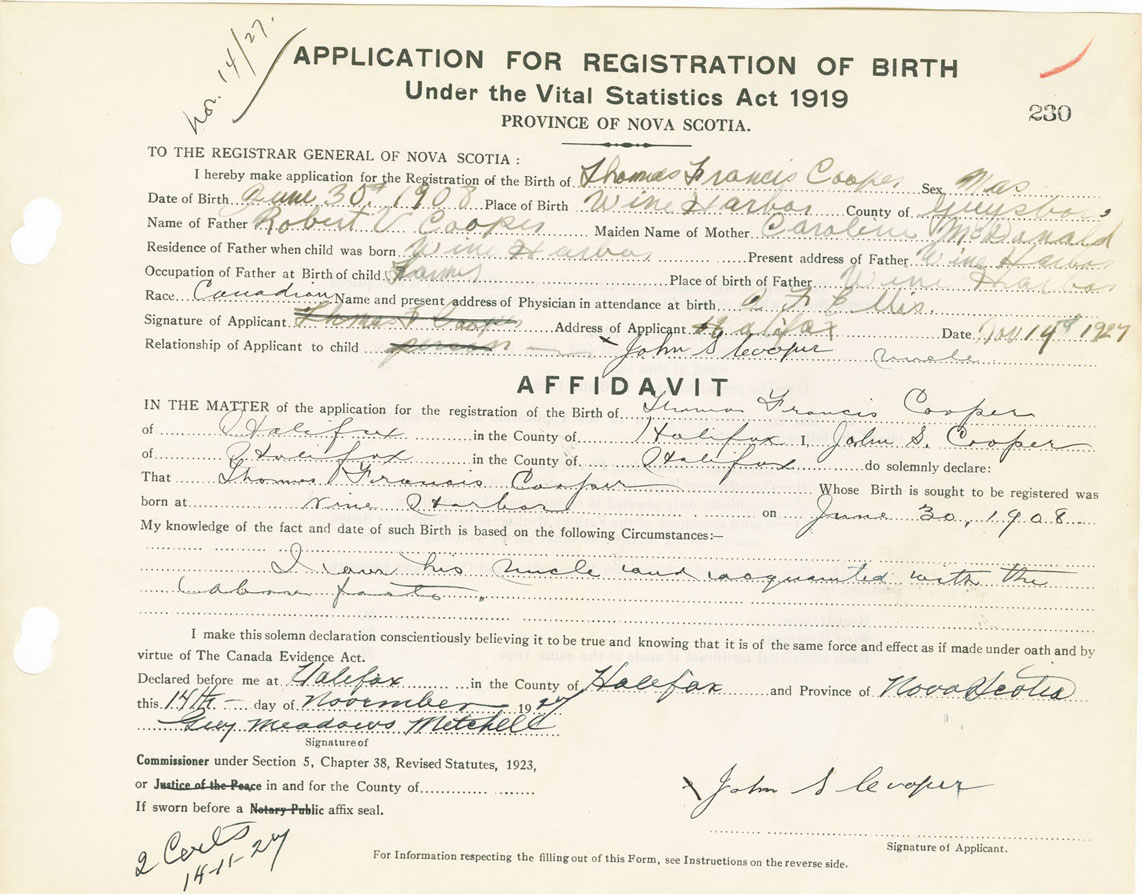 Nov. 14/27.
APPLICATION FOR REGISTRATION OF BIRTH
Under the Vital Statistics Act 1919
230
PROVINCE OF NOVA SCOTIA.
TO THE REGISTRAR GENERAL OF NOVA SCOTIA :
I hereby make application for the Registration of the Birth of Thomas Francis Cooper Sex Mas
Date of Birth June 30th 1908 Place of Birth Wine Harbor County of Guysboro
Name of Father Robert V Cooper Maiden Name of Mother Caroline McDonald
Residence of Father when child was born Wine Harbor Present address of Father Wine Harbor
Occupation of Father at Birth of child Place of birth of Father Wine Harbor
Race Canadian Name and present address of Physician in attendance at birth F Ellis.
Signature of Applicant Thomas F Cooper Address of Applicant Halifax Date Nov 14th 1927
Relationship of Applicant to child person x John S Cooper uncle
AFFIDAVIT
IN THE MATTER of the application for the registration of the Birth of Thomas Francis Cooper
of Halifax in the County of Halifax I, John S. Cooper
of Halifax in the County of Halifax do solemnly declare:
That Thomas Francis Cooper Whose Birth is sought to be registered was
born at Wine Harbor on June 30, 1908
My knowledge of the fact and date of such Birth is based on the following Circumstances:—
I am his uncle and acquainted with the
above facts.
I make this solemn declaration conscientiously believing it to be true and knowing that it is of the same force and effect as if made under oath and by
virtue of The Canada Evidence Act.
Declared before me at Halifax in the County of Halifax and Province of Nova Scotia
this 14th - day of November 1927
Guy Meadows Mitchell
Signature of
Commissioner under Section 5, Chapter 38, Revised Statutes, 1923,
or Justice of the Peace in and for the County of
If sworn before a Notary Public affix seal.
x John S Cooper
Signature of Applicant.
2 Certs
14-11-27
For Information respecting the filling out of this Form, see Instructions on the reverse side.